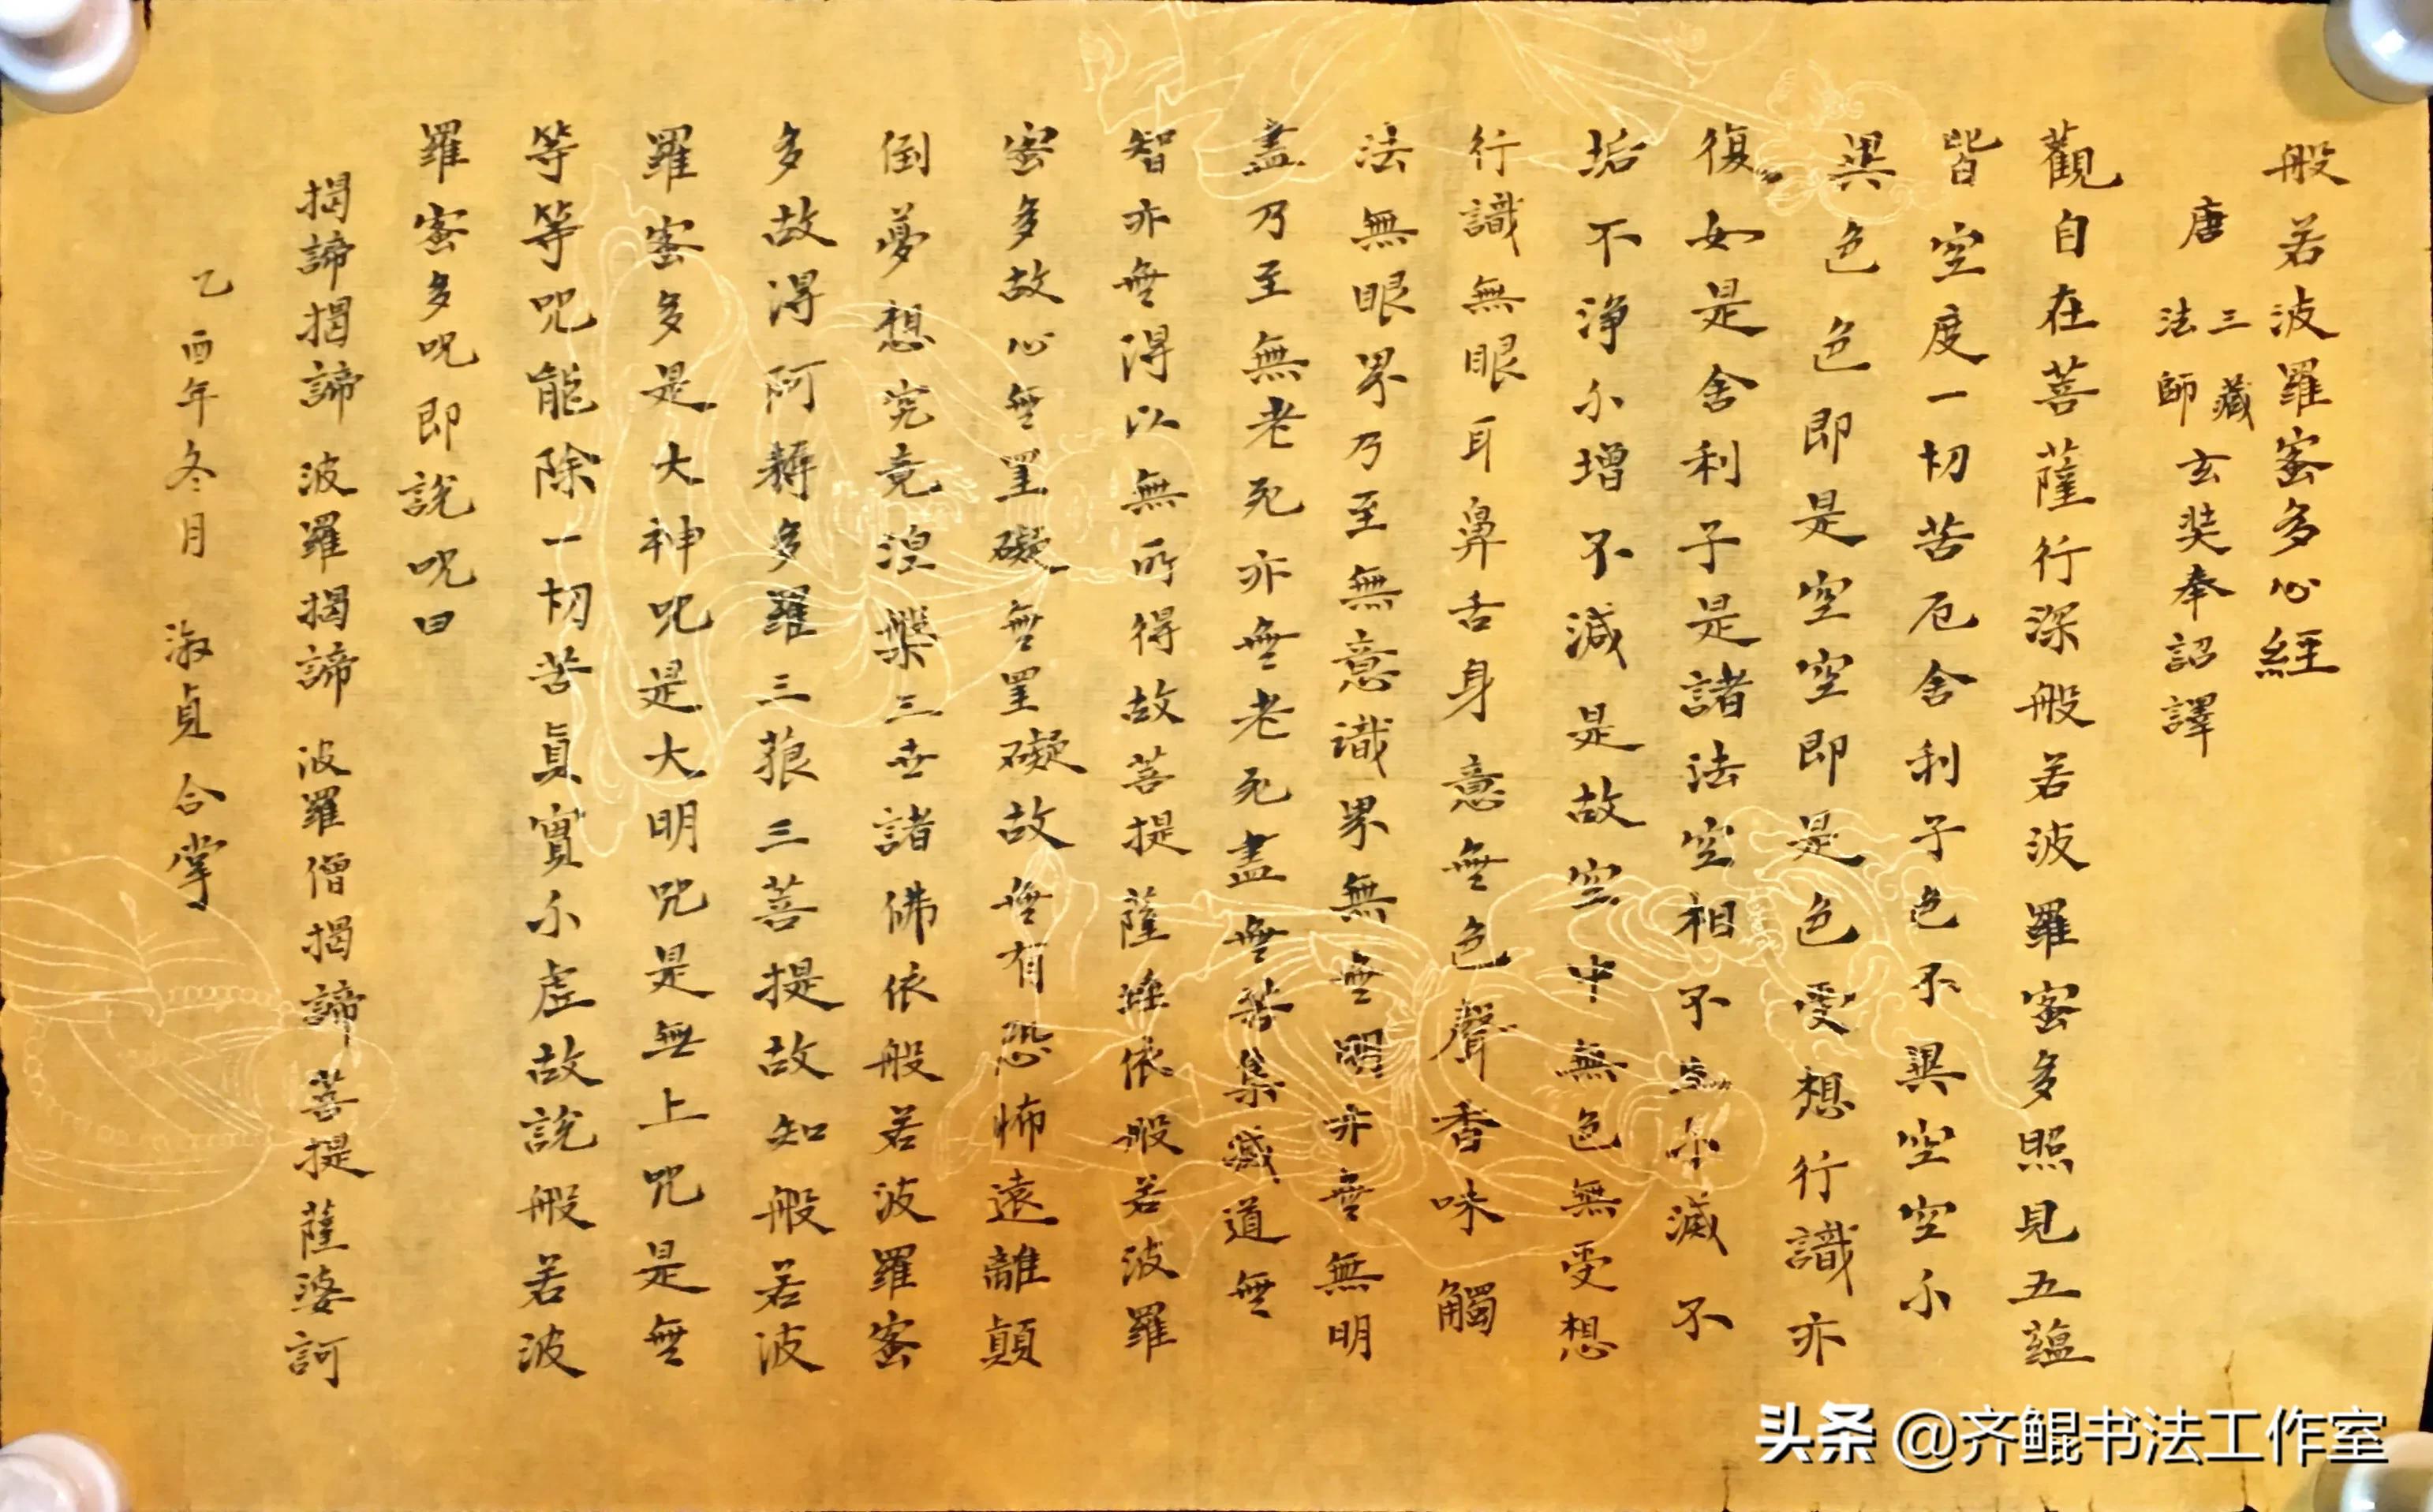 般若波羅蜜多心經
唐三藏法師玄奘奉詔譯
觀自在菩薩行深般若波羅蜜多照見五蘊
皆空度一切苦厄舍利子色不異空空不
異色色即是空空即是色受想行識亦
復如是舍利子是諸法空相不生不滅不
垢不淨不增不減是故空中無色無受想
行識無眼耳鼻舌身意無色聲香味觸
法無眼界乃至無意識界無無明亦無無明
盡乃至無老死亦無老死盡無苦集滅道無
智亦無得以無所得故菩提薩埵依般若波羅
蜜多故心無罣礙無罣礙故無有恐怖遠離顛
倒夢想究竟涅槃三世諸佛依般若波羅蜜
多故得阿耨多羅三藐三菩提故知般若波
羅蜜多是大神咒是大明咒是無上咒是無
等等咒能除一切苦真實不虛故說般若波
羅蜜多咒即說咒曰
揭諦揭諦波羅揭諦波羅僧揭諦菩提薩婆訶
乙酉年冬月淑貞合掌
头条@齐鲲书法工作室